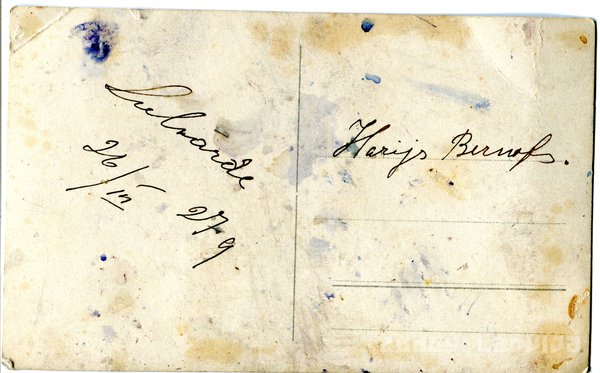 Lielvārde
26/III 27 g
Harijs Bernofs.